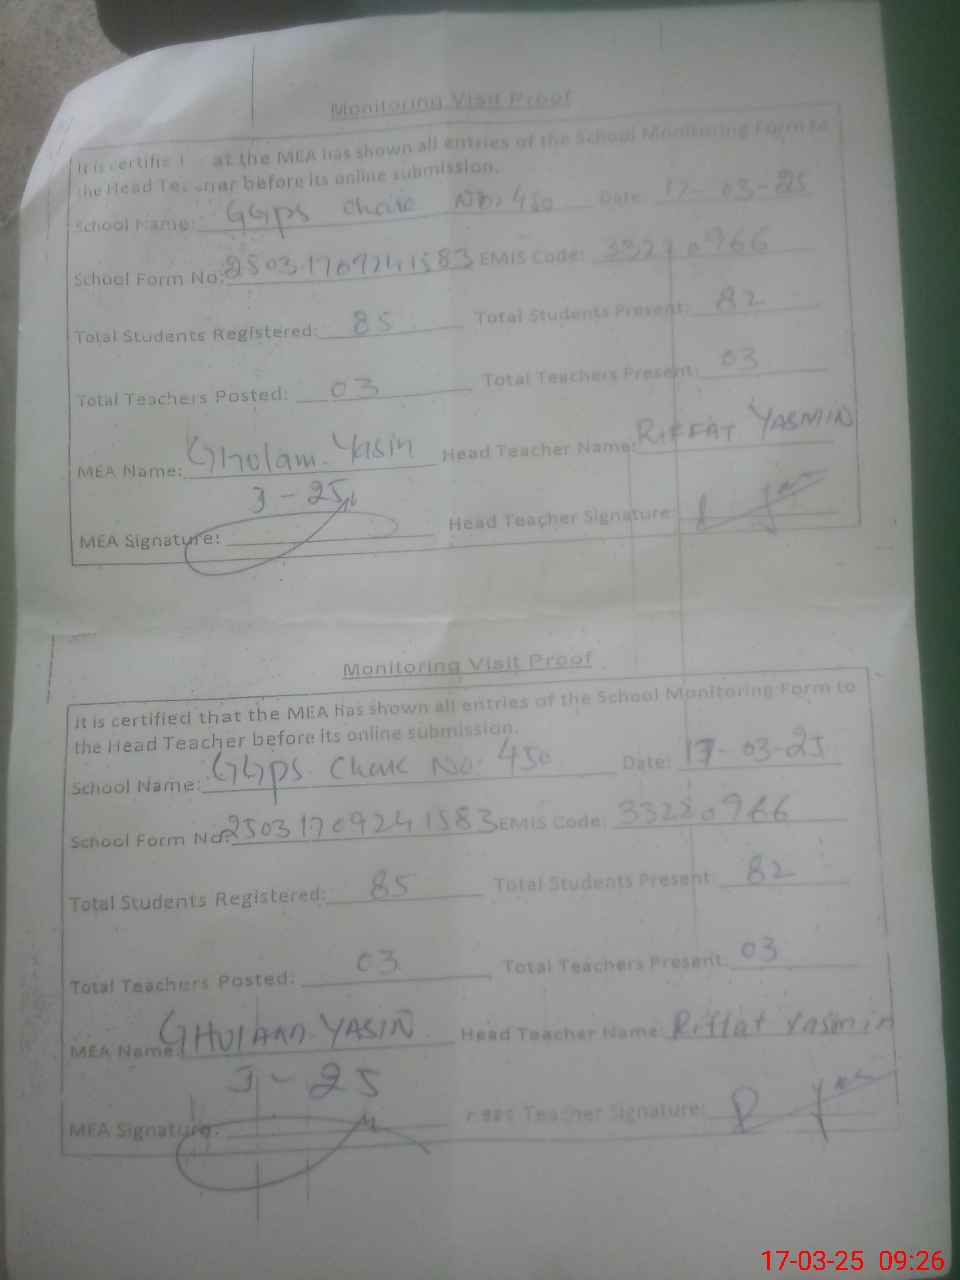 Monitoring Visit Proof
It is certifi at the MEA has shown all entries of the School Monitoring Form to
the Head Teacher before its online submission.
School Name: GGps Chak No. 450 Date: 17-03-25
School Form No: 25031709241583 EMIS Code: 33210966
Total Students Registered: 85 Total Students Present: 82
Total Teachers Posted: 03 Total Teachers Present: 03
MEA Name: Gholam Yasin Head Teacher Name: RIFFAT YASMIN
3-25
MEA Signature: Head Teacher Signature:
Monitoring Visit Proof
It is certified that the MEA has shown all entries of the School Monitoring Form to
the Head Teacher before its online submission.
School Name: GGps Chak No. 450 Date: 17-03-25
School Form No: 25031709241583 EMIS Code: 33210966
Total Students Registered: 85 Total Students Present: 82
Total Teachers Posted: 03 Total Teachers Present: 03
MEA Name: GHULAM YASIN Head Teacher Name: Riffat Yasmin
3-25
MEA Signature: Teacher Signature:
17-03-25 09:26